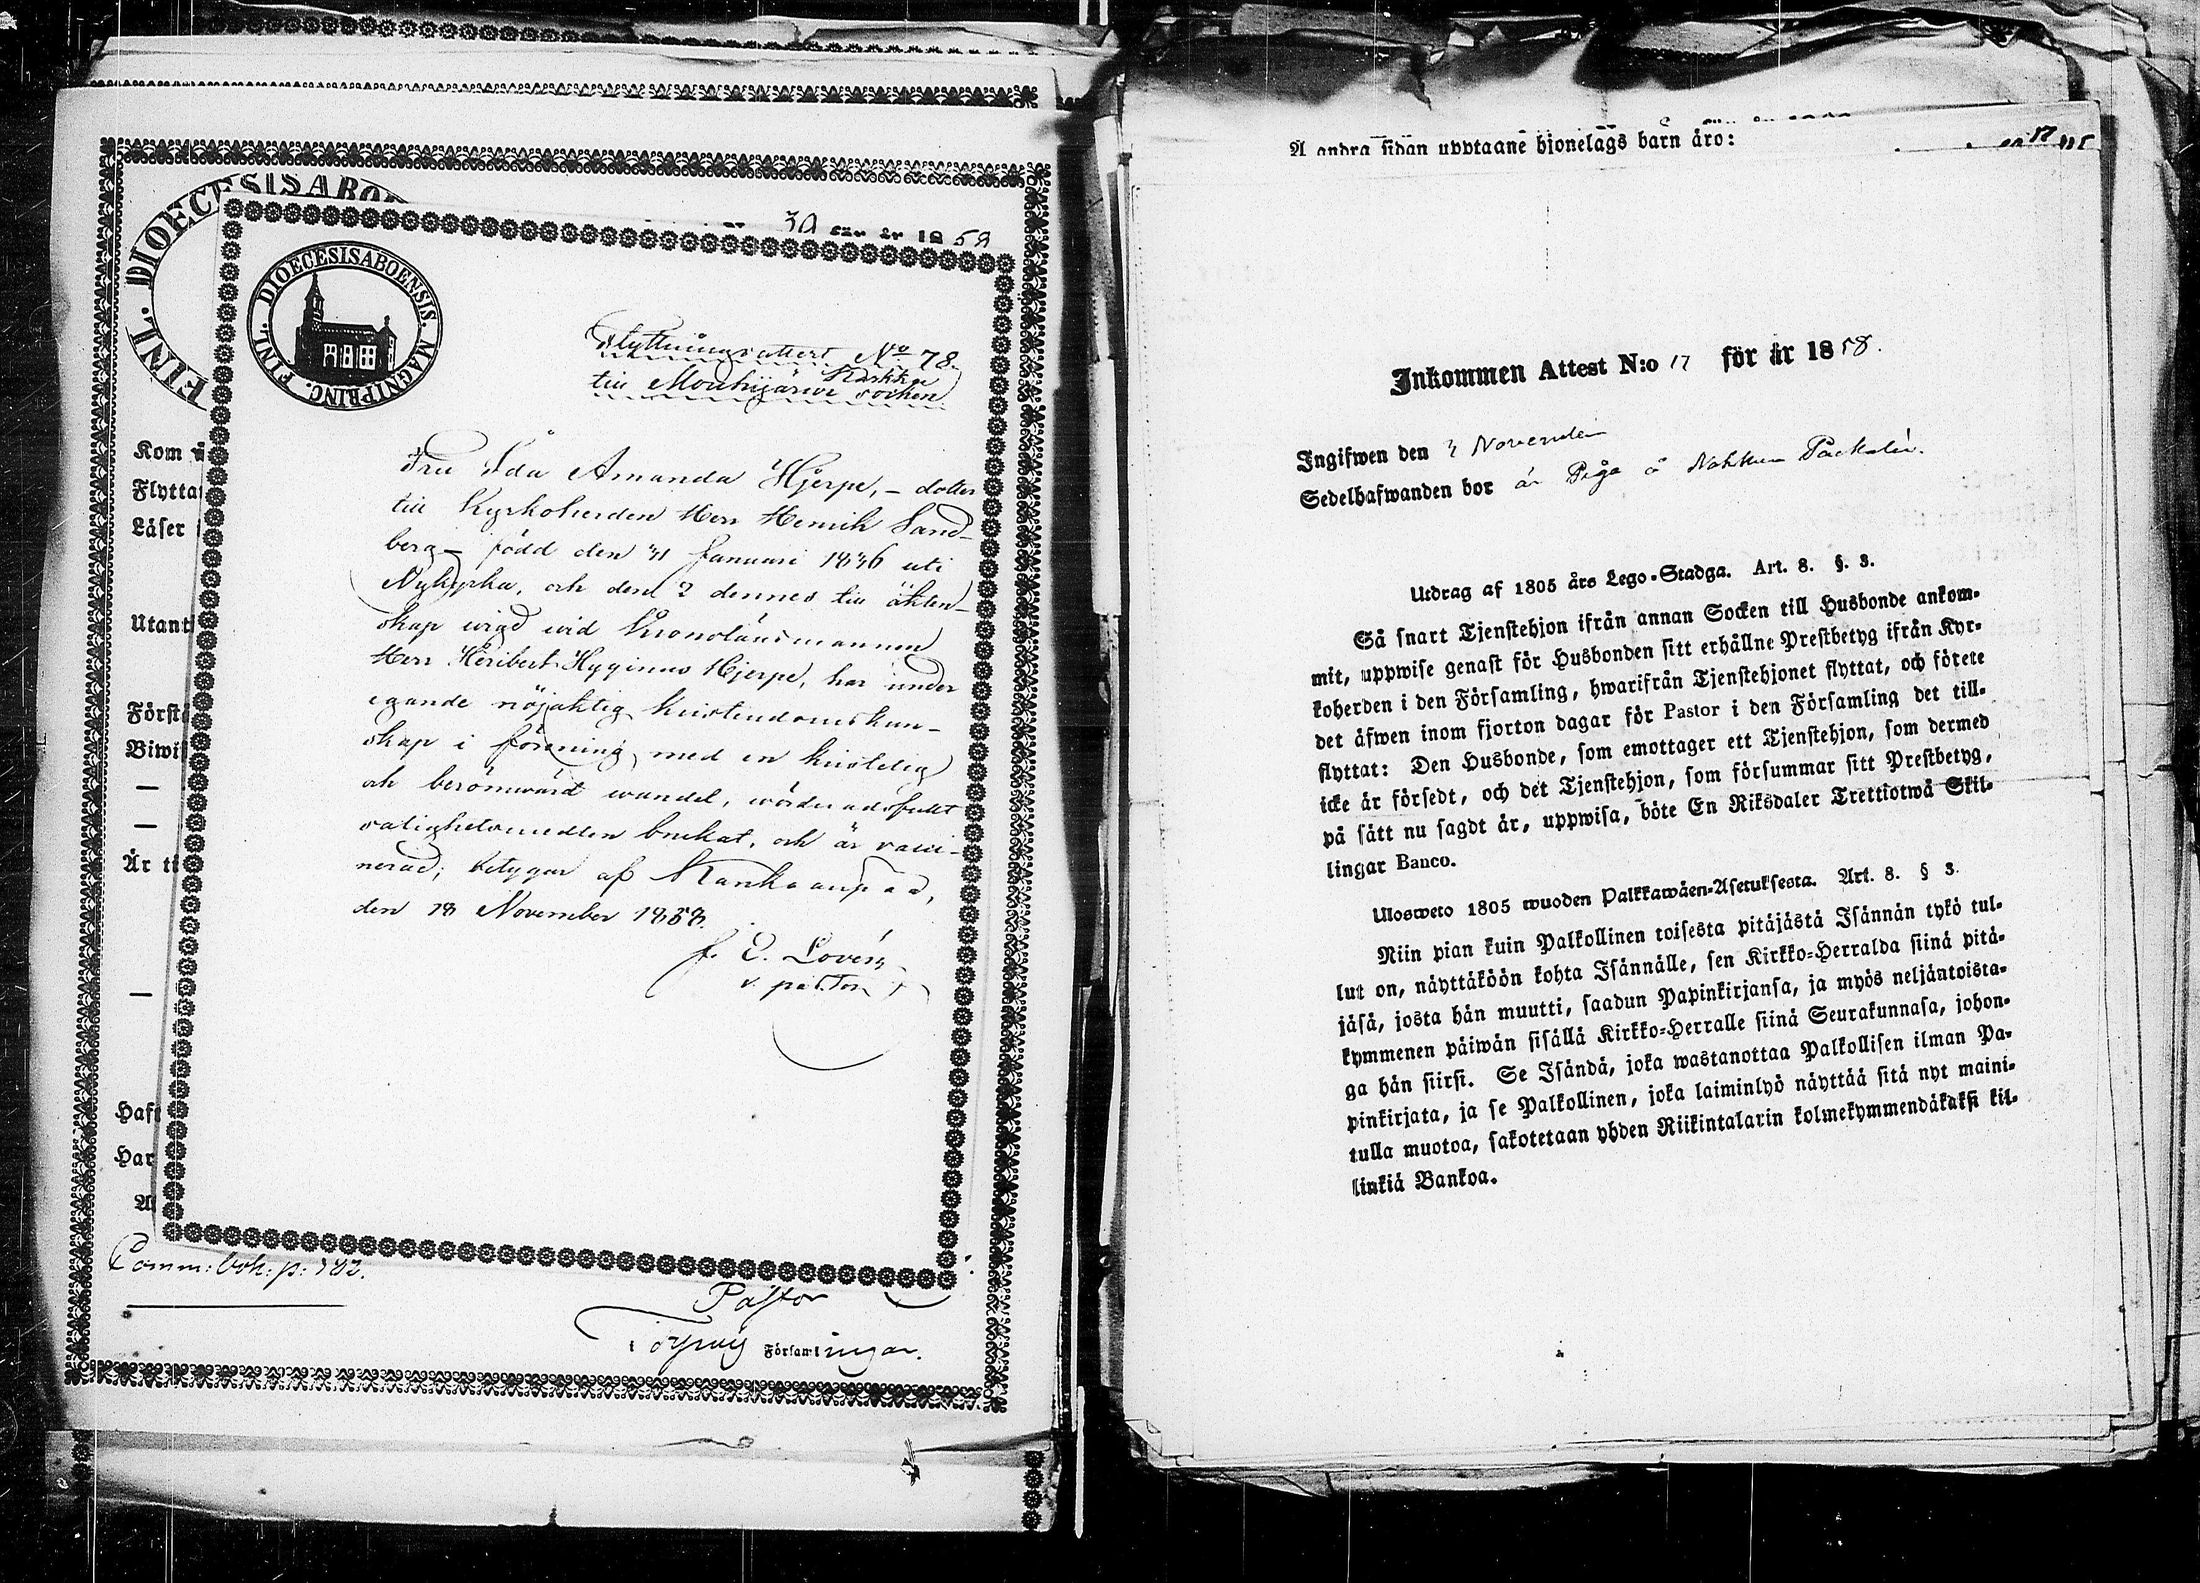 FINL. DIOECESISABO
30 för år 1858
FINL. DIOECESISABOENSIS. MAGNIPRINC.
Flyttningsattest No 78
Karkku
till Mouhijärvi socken
Fru Ida Amanda Hjerpe, – dotter
till Kyrkoherden Herr Henrik Sand-
berg – född den 31 Januari 1836 uti
Nykyrka, och den 2 dennes till äkten-
skap wigd wid Kronolänsmannen
Herr Heribert Hyginus Hjerpe, har under
egande nöjaktig kristendomskun-
skap i förening med en kristelig
och berömwärd wandel, wördnadsfullt
salighetsmedlen brukat, och är vacci-
nerad; betygar af Kankaanpää,
den 18 November 1858.
f. E. Lovén
v. pastor
Kom
Flytta
Läser
Utant
Först
Biwi
—
—
Är ti
—
Haft
Har
A
Comm: bok: p: 182.
Pastor
Församlingar.
A andra sidan upptagne hjonelags barn äro:
Inkommen Attest N:o 17 för år 1858.
Ingifwen den November
Sedelhafwanden bor är Piga å
Utdrag af 1805 års Lego-Stadga. Art. 8. §. 3.
Så snart Tjenstehjon ifrån annan Socken till Husbonde ankom-
mit, uppwise genast för Husbonden sitt erhållne Prestbetyg ifrån Kyr-
koherden i den Församling, hwarifrån Tjenstehjonet flyttat, och förete
det äfwen inom fjorton dagar för Pastor i den Församling det till-
flyttat: Den Husbonde, som emottager ett Tjenstehjon, som dermed
icke är försedt, och det Tjenstehjon, som försummar sitt Prestbetyg,
på sätt nu sagdt är, uppwisa, böte En Riksdaler Trettiotwå Skil-
lingar Banco.
Ulosweto 1805 wuoden Palkkawäen-Asetuksesta. Art. 8. § 3.
Niin pian kuin Palkollinen toisesta pitäjästä Isännän tykö tul-
lut on, näyttäköön kohta Isännälle, sen Kirkko-Herralda siinä pitä-
jäsä, josta hän muutti, saadun Papinkirjansa, ja myös neljäntoista-
kymmenen päiwän sisällä Kirkko-Herralle siinä Seurakunnasa, johon-
ga hän siirsi. Se Isändä, joka wastanottaa Palkollisen ilman Pa-
pinkirjata, ja se Palkollinen, joka laiminlyö näyttää sitä nyt maini-
tulla muotoa, sakotetaan yhden Riikintalarin kolmekymmendäkaksi kil-
linkiä Bankoa.